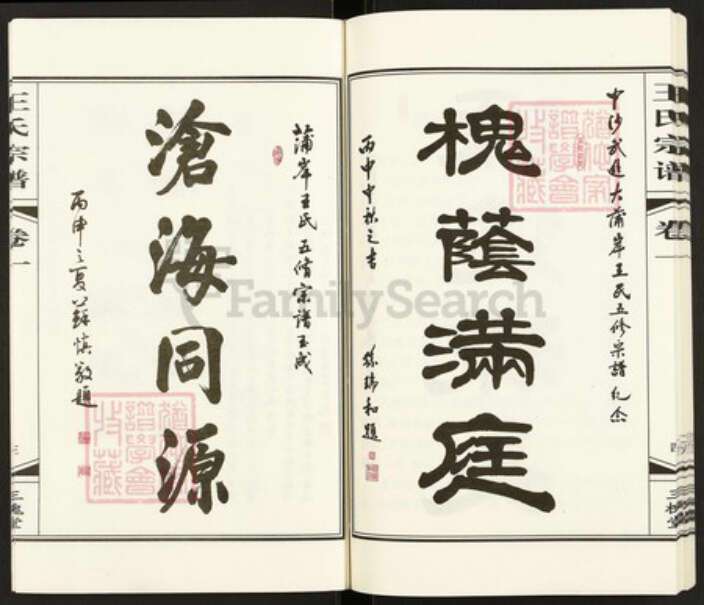 王氏宗谱
卷一
四
三槐堂
中沙武進大蒲岸王氏五修宗譜紀念
槐蔭滿庭
丙申中秋之吉
孫瑞和題
蒲岸王氏五脩宗譜玉成
滄海同源
丙申之夏蘇慎敬題
王氏宗譜
卷一
三
三槐堂
FamilySearch